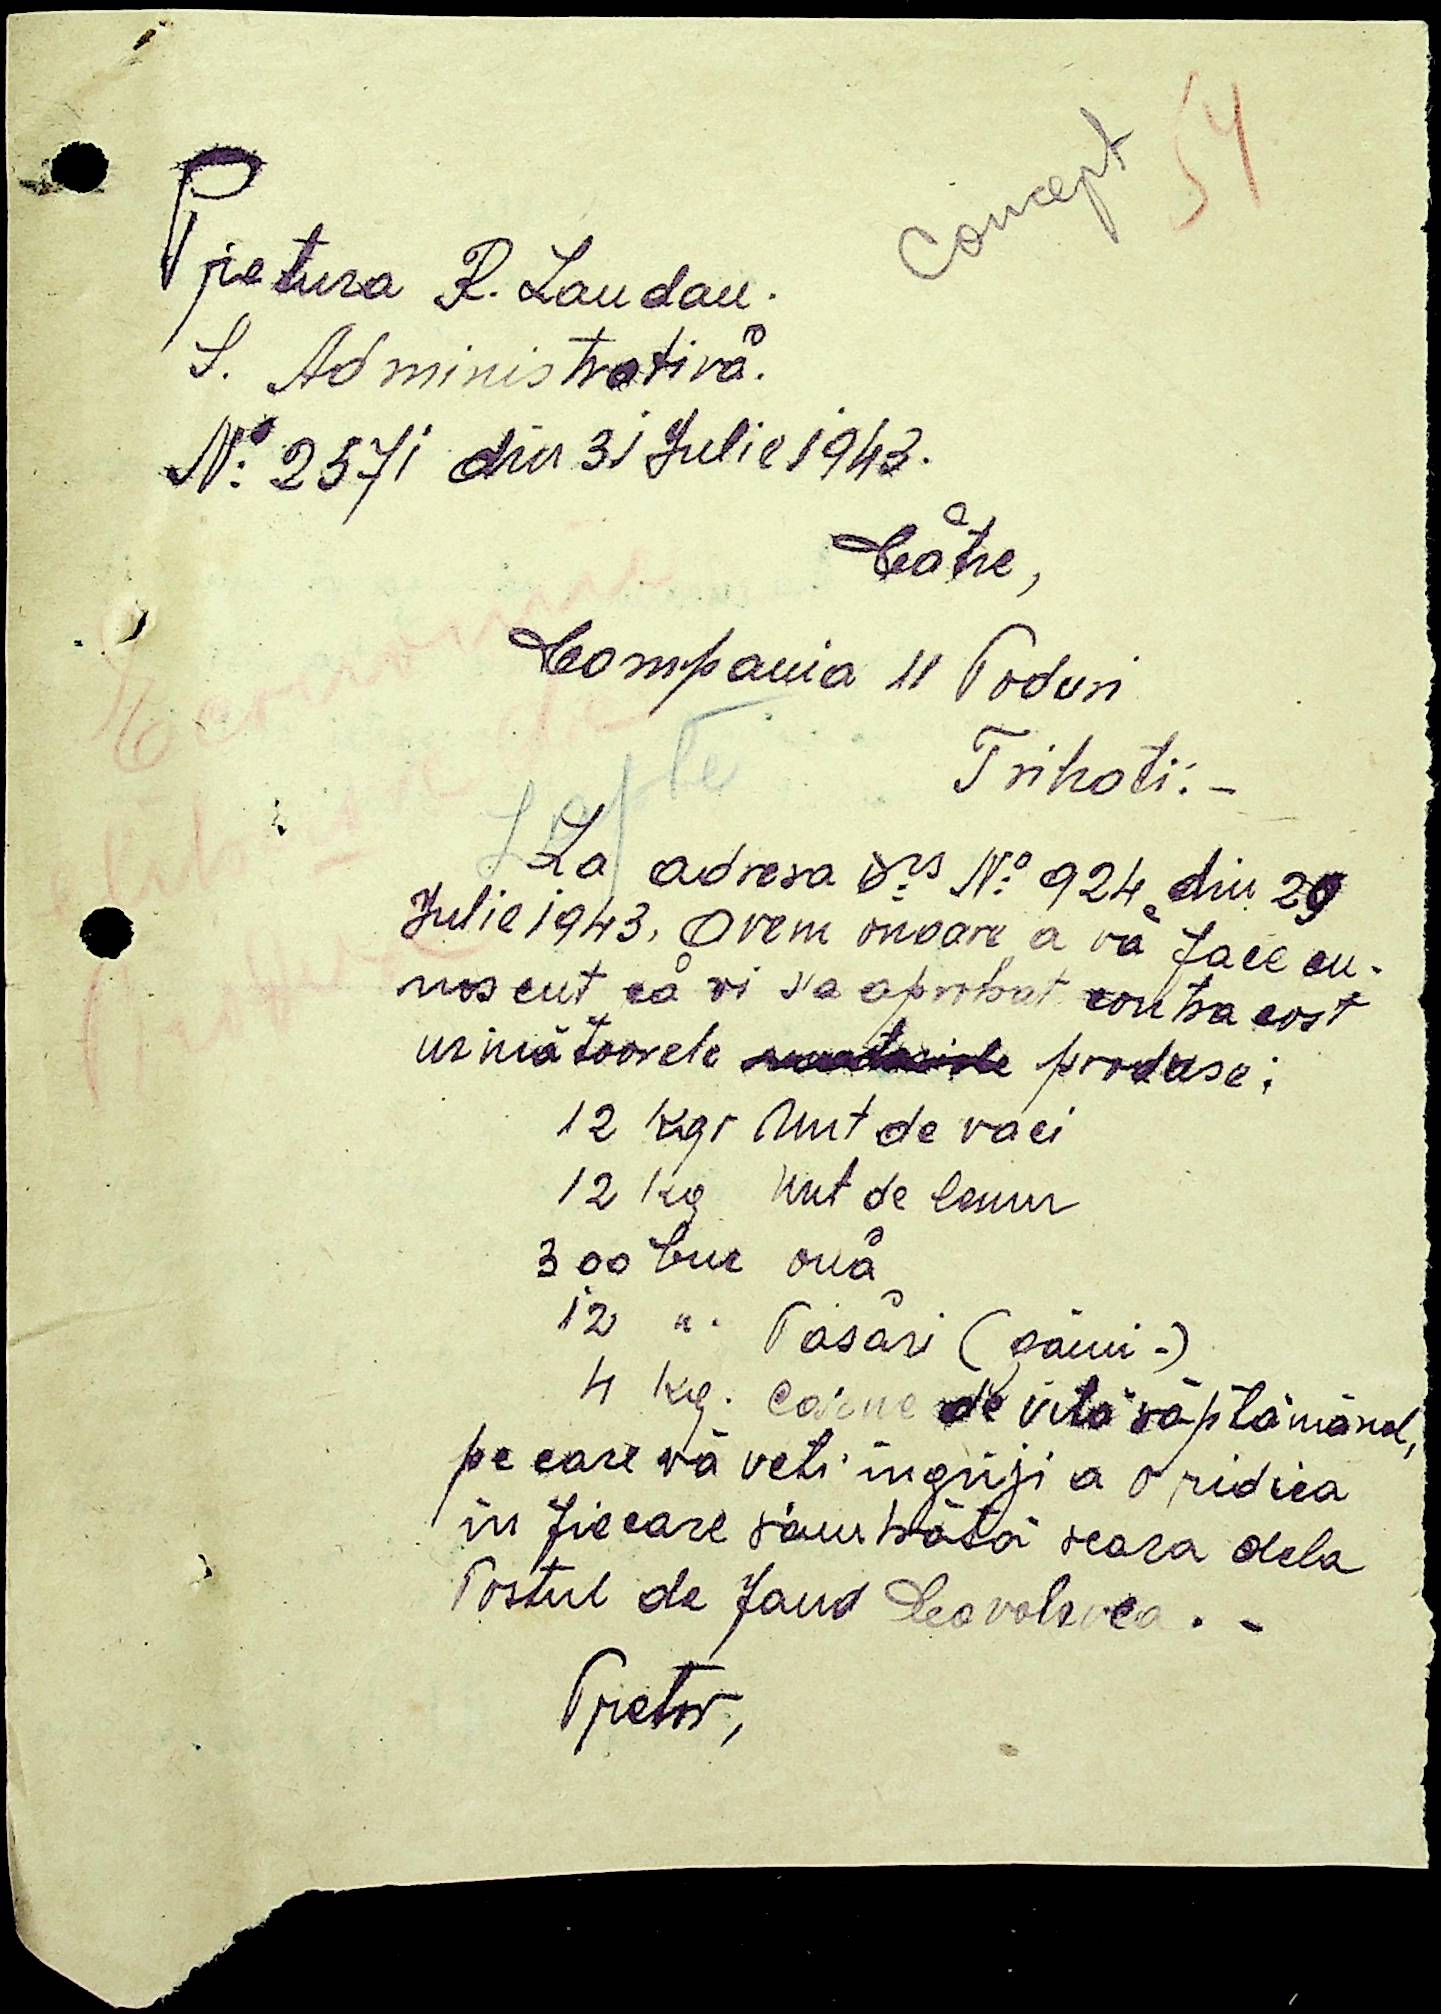 Concept 54
Pretura R. Landau.
S. Administrativă.
No: 2571 din 31 Iulie 1943.
Către,
Compania 11 Poduri
Trihati: -
Lapte
La adresa Dvs No: 924 din 29
Iulie 1943. Avem onoare a vă face cu-
noscut că vi s'a aprobat contra cost
următoarele produse:
12 kgr Unt de vaci
12 kg Unt de lemn
300 buc ouă
12 ". Păsări (găini-)
4 kg. carne de vită săptămânal,
pe care vă veti îngriji a o ridica
in fiecare sâmbătă seara dela
Postul de Jand Covalevca. -
Pretor,